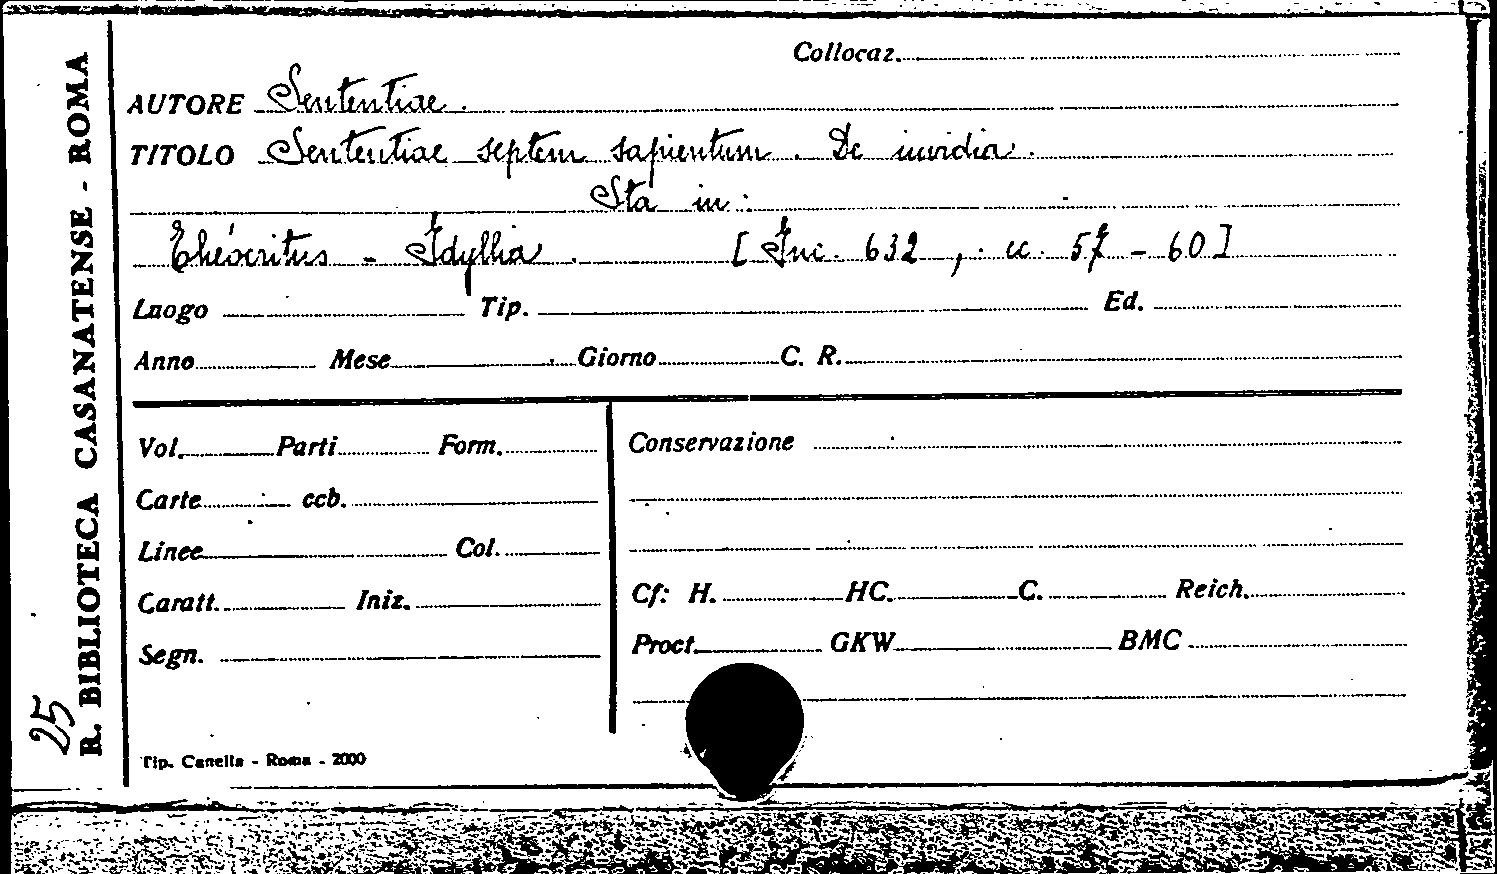 Collocaz.
AUTORE Sententiae.
TITOLO Sententiae septem sapientum. De invidia.
Sta in:
Theocritus - Idyllia. [Inc. 632, cc. 57-60]
Luogo Tip. Ed.
Anno Mese Giorno C. R.
Vol. Parti Form.
Carte ccb.
Linee Col.
Caratt. Iniz.
Segn.
Conservazione
Cf: H. HC. C. Reich.
Proct. GKW BMC
Tip. Canella - Roma - 2000
R. BIBLIOTECA CASANATENSE - ROMA
25